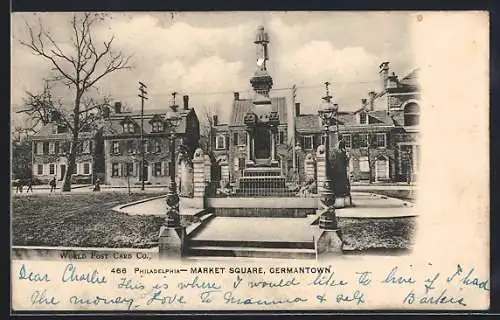 WORLD POST CARD CO.
466 PHILADELPHIA — MARKET SQUARE, GERMANTOWN
Dear Charlie This is where I would like to live if I had
the money Love to Mamma & self